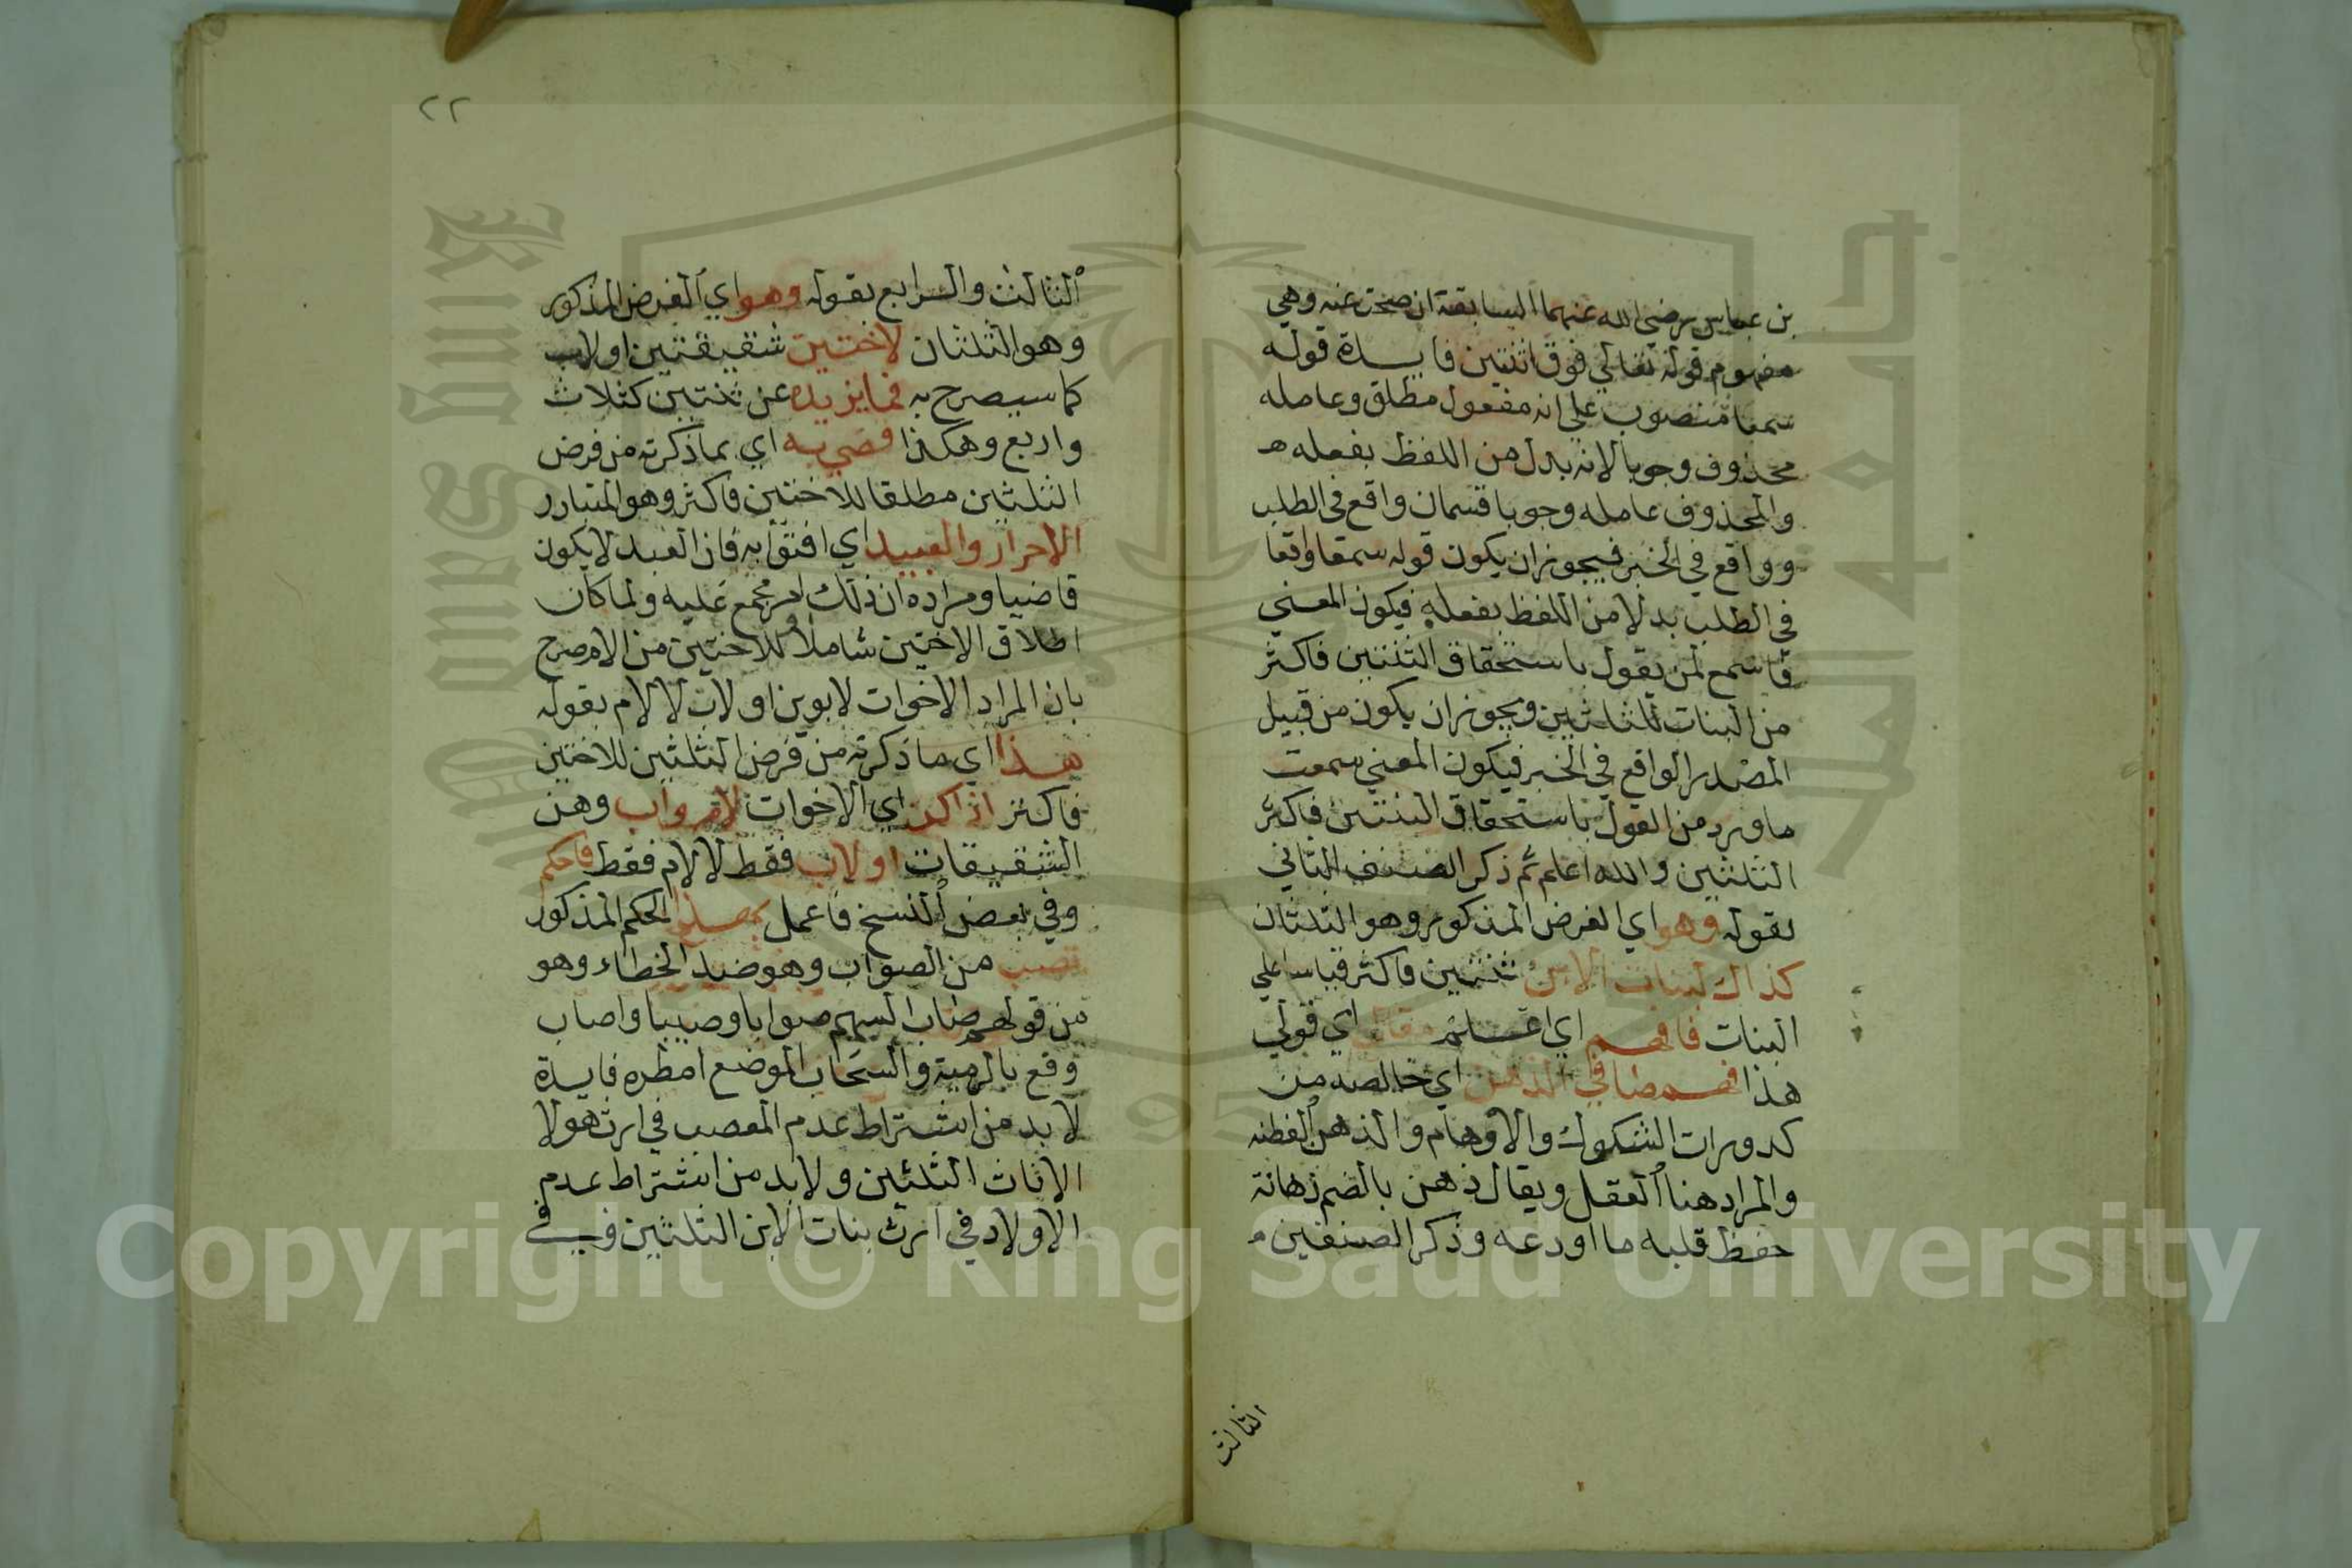 بن عباس رضي الله عنهما السابقة ان صحت عنه وهي
مفهوم قوله تعالي فوق اثنتين فايدة قوله
سمعا منصوب علي انه مفعول مطلق وعامله
محذوف وجوبا لانه بدل من اللفظ بفعله هـ
والمحذوف عامله وجوبا قسمان واقع في الطلب
وواقع في الخبر فيجوز ان يكون قوله سمعا واقعا
في الطلب بدلا من اللفظ بفعله فيكون المعني
فاسمع لمن يقول باستحقاق الثنتين فاكثر
من البنات للثلثين ويجوز ان يكون من قبيل
المصدر الواقع في الخبر فيكون المعني سمعت
ما ورد من القول باستحقاق البنتين فاكثر
الثلثين والله اعلم ثم ذكر الصنف الثاني
بقوله وهو اي الفرض المذكور وهو الثلثان
كذاك لبنات الابن ثنتين فاكثر قياسا علي
البنات فافهم اي اعلم مقالي اي قولي
هذا فهم صافي الذهن اي خالصه من
كدورات الشكوك والاوهام والذهن الفطنه
والمراد هنا العقل ويقال ذهن بالضم ذهانة
حفظ قلبه ما اودعه وذكر الصنفين
الثالث
٢٢
الثالث والرابع بقوله وهو اي الفرض المذكور
وهو الثلثان لاختين شقيقتين او لاب
كما سيصرح به فما يزيده عن ثنتين كثلاث
واربع وهكذا قضي به اي بما ذكرته من فرض
الثلثين مطلقا للاختين فاكثر وهو المتبادر
الاحرار والعبيد اي افتوا به فان العبد لا يكون
قاضيا ومراده ان ذلك امر مجمع عليه ولما كان
اطلاق الاختين شاملا للاختين من الام صرح
بان المراد الاخوات لابوين او لاب لا لام بقوله
هذا اي ما ذكرته من فرض الثلثين للاختين
فاكثر اذا كن اي الاخوات لام واب وهن
الشقيقات او لاب فقط لا لام فقط فاحكم
وفي بعض النسخ فاعمل بهذا الحكم المذكور
تصب من الصواب وهو ضد الخطاء وهو
من قولهم صاب السهم صوابا وصيبا واصاب
وقع بالرمية والسحاب الموضع امطره فايدة
لا بد من اشتراط عدم المعصب في ارث هولا
الاناث الثلثين ولا بد من اشتراط عدم
الاولاد في ارث بنات الابن الثلثين وفي
Copyright © King Saud University